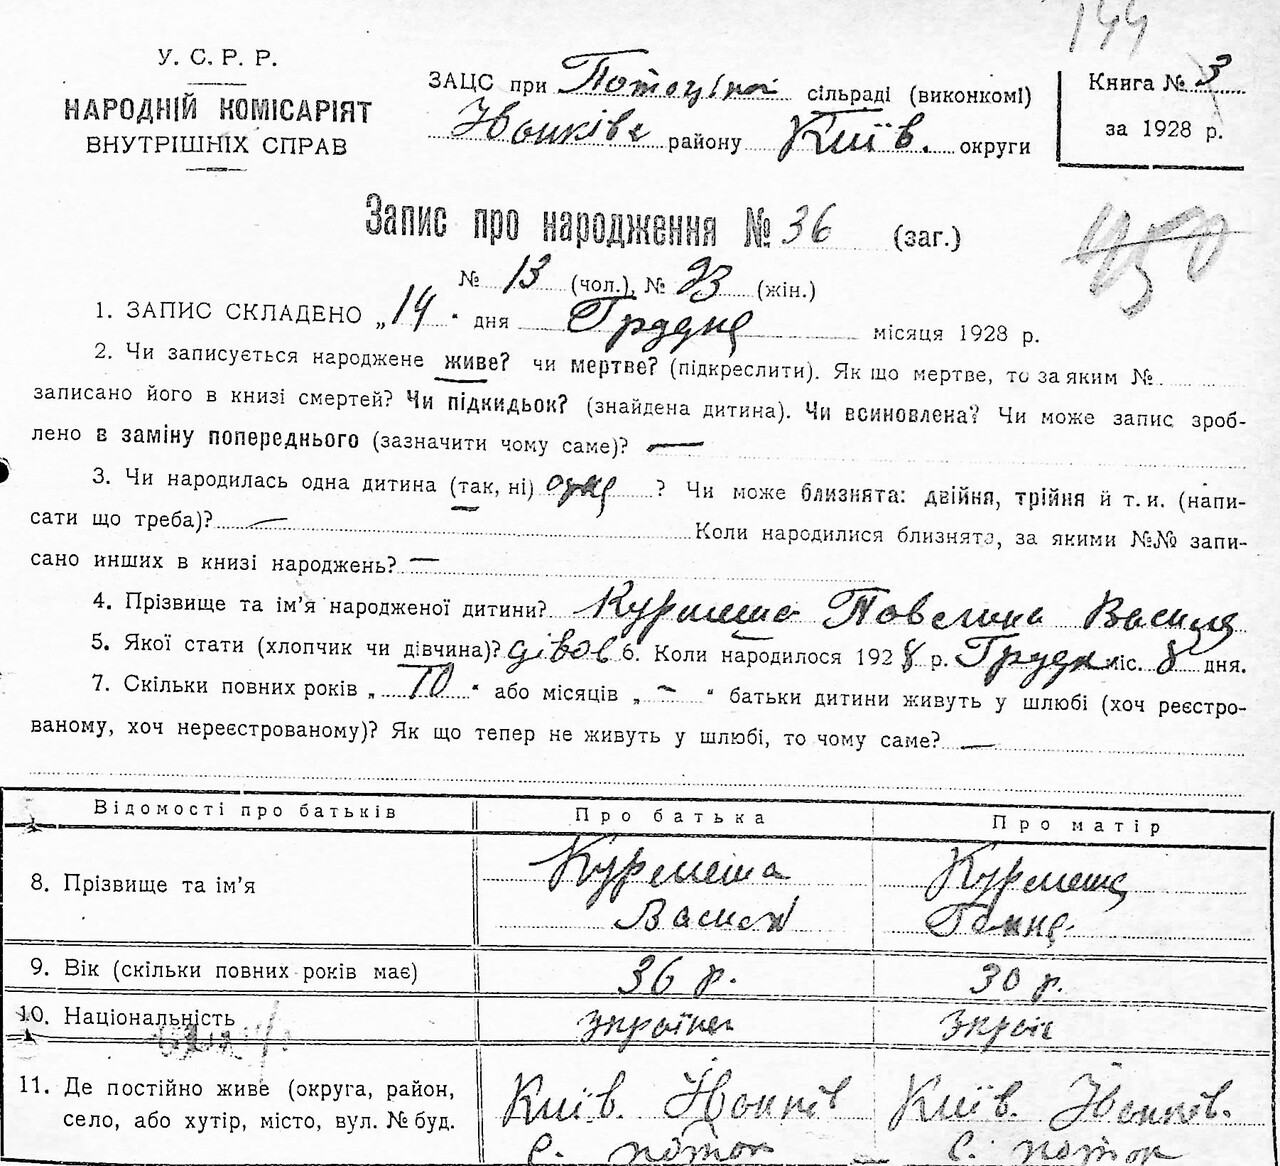 144
У. С. Р. Р.
НАРОДНІЙ КОМІСАРІЯТ
ВНУТРІШНІХ СПРАВ
ЗАЦС при сільраді (виконкомі)
району Київ. округи
Книга № 3
за 1928 р.
Запис про народження № 36 (заг.)
450
№ 13 (чол.), № 23 (жін.)
1. ЗАПИС СКЛАДЕНО „14" дня Грудня місяця 1928 р.
2. Чи записується народжене живе? чи мертве? (підкреслити). Як що мертве, то за яким №
записано його в книзі смертей? Чи підкидьок? (знайдена дитина). Чи всиновлена? Чи може запис зроб-
лено в заміну попереднього (зазначити чому саме)? —
3. Чи народилась одна дитина (так, ні) одна ? Чи може близнята: двійня, трійня й т. и. (напи-
сати що треба)? — Коли народилися близнята, за якими №№ запи-
сано инших в книзі народжень? —
4. Прізвище та ім'я народженої дитини? Курмеша Павлина Василя
5. Якої статі (хлопчик чи дівчина)? дівоч 6. Коли народилось 1928 р. Грудн міс. 8 дня.
7. Скільки повних років „ 10 " або місяців „ — " батьки дитини живуть у шлюбі (хоч реєстро-
ваному, хоч нереєстрованому)? Як що тепер не живуть у шлюбі, то чому саме? —
Відомості про батьків Про батька Про матір
8. Прізвище та ім'я Курмеша Василь Курмеша Ганна
9. Вік (скільки повних років має) 36 р. 30 р.
10. Національність українец украін
11. Де постійно живе (округа, район, Київ. Київ.
село, або хутір, місто, вул. № буд. с. поток с. поток